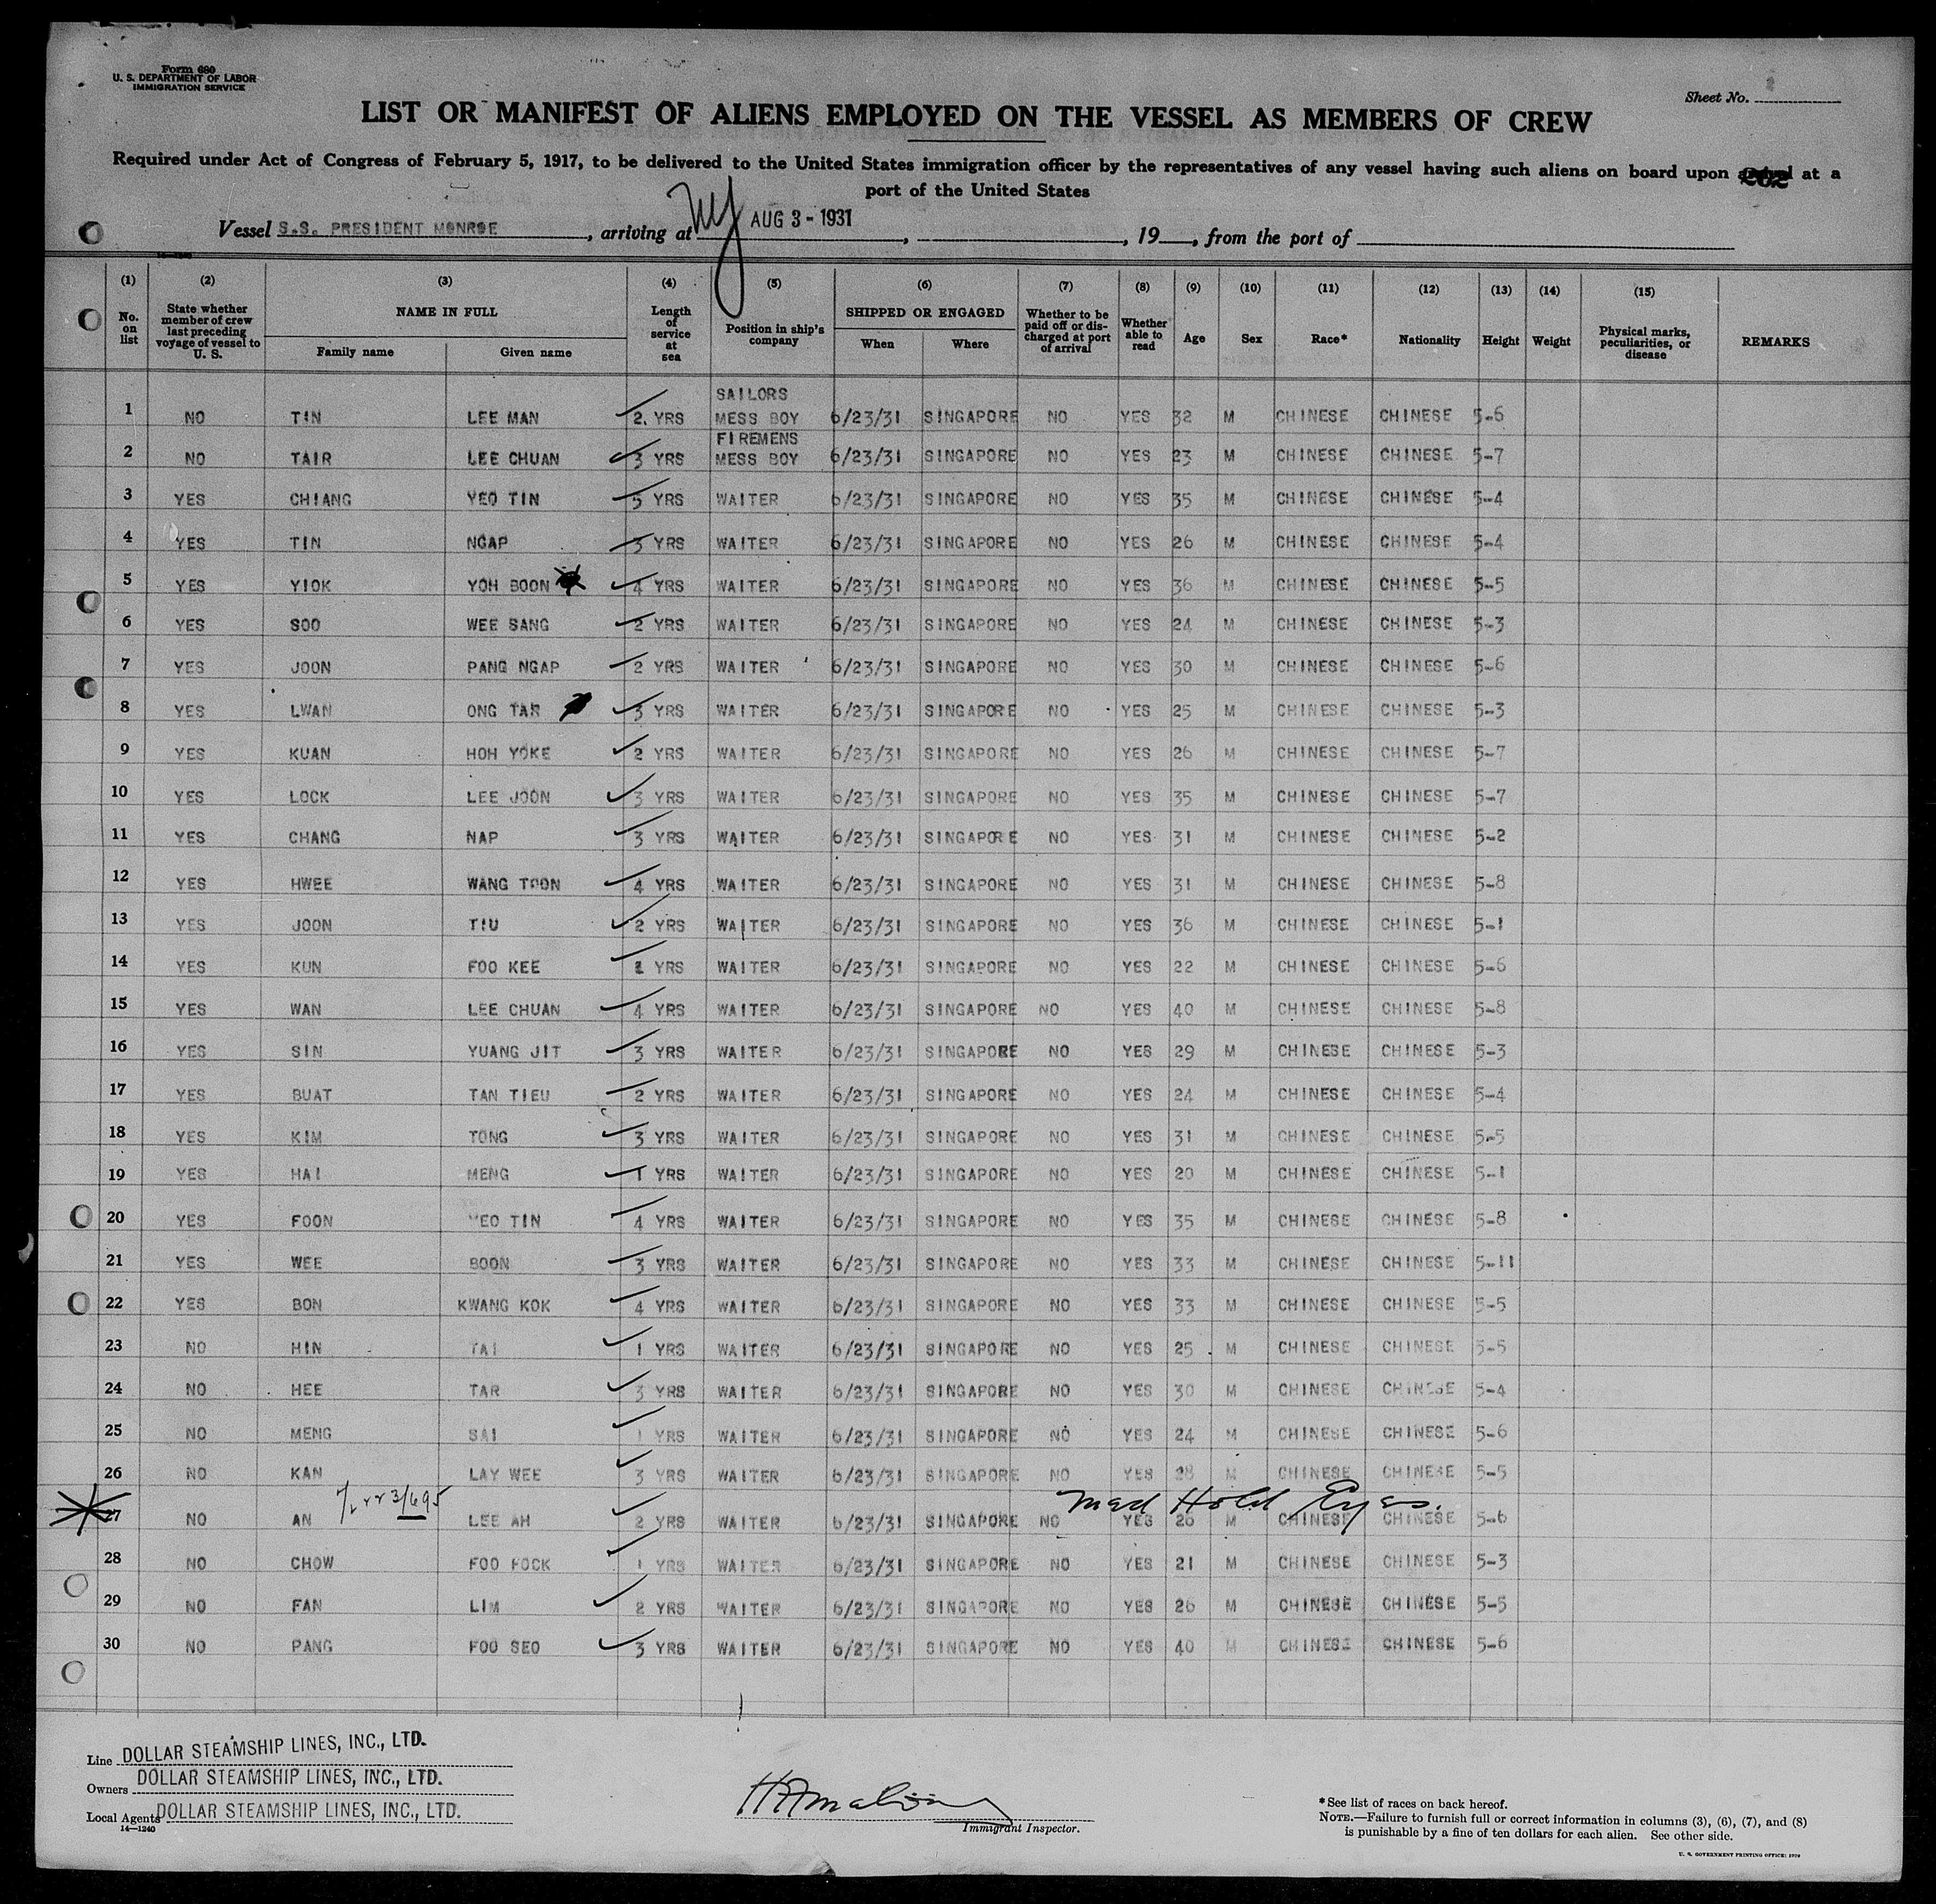 Form 680
U. S. DEPARTMENT OF LABOR
IMMIGRATION SERVICE
Sheet No. 2
LIST OR MANIFEST OF ALIENS EMPLOYED ON THE VESSEL AS MEMBERS OF CREW
Required under Act of Congress of February 5, 1917, to be delivered to the United States immigration officer by the representatives of any vessel having such aliens on board upon arrival at a
port of the United States
Vessel S.S. PRESIDENT MONROE, arriving at NY AUG 3 - 1931, , 19 , from the port of
14—1240
(1) (2) (3) (4) (5) (6) (7) (8) (9) (10) (11) (12) (13) (14) (15)
No. on list State whether member of crew last preceding voyage of vessel to U. S. NAME IN FULL Family name Given name Length of service at sea Position in ship's company SHIPPED OR ENGAGED When Where Whether to be paid off or discharged at port of arrival Whether able to read Age Sex Race* Nationality Height Weight Physical marks, peculiarities, or disease REMARKS
1 NO TIN LEE MAN 2 YRS SAILORS MESS BOY 6/23/31 SINGAPORE NO YES 32 M CHINESE CHINESE 5-6
2 NO TAIR LEE CHUAN 3 YRS FIREMENS MESS BOY 6/23/31 SINGAPORE NO YES 23 M CHINESE CHINESE 5-7
3 YES CHIANG YEO TIN 5 YRS WAITER 6/23/31 SINGAPORE NO YES 35 M CHINESE CHINESE 5-4
4 YES TIN NGAP 3 YRS WAITER 6/23/31 SINGAPORE NO YES 26 M CHINESE CHINESE 5-4
5 YES YIOK YOH BOON 4 YRS WAITER 6/23/31 SINGAPORE NO YES 36 M CHINESE CHINESE 5-5
6 YES SOO WEE SANG 2 YRS WAITER 6/23/31 SINGAPORE NO YES 24 M CHINESE CHINESE 5-3
7 YES JOON PANG NGAP 2 YRS WAITER 6/23/31 SINGAPORE NO YES 30 M CHINESE CHINESE 5-6
8 YES LWAN ONG TAR 3 YRS WAITER 6/23/31 SINGAPORE NO YES 25 M CHINESE CHINESE 5-3
9 YES KUAN HOH YOKE 2 YRS WAITER 6/23/31 SINGAPORE NO YES 26 M CHINESE CHINESE 5-7
10 YES LOCK LEE JOON 3 YRS WAITER 6/23/31 SINGAPORE NO YES 35 M CHINESE CHINESE 5-7
11 YES CHANG NAP 3 YRS WAITER 6/23/31 SINGAPORE NO YES 31 M CHINESE CHINESE 5-2
12 YES HWEE WANG TOON 4 YRS WAITER 6/23/31 SINGAPORE NO YES 31 M CHINESE CHINESE 5-8
13 YES JOON TIU 2 YRS WAITER 6/23/31 SINGAPORE NO YES 36 M CHINESE CHINESE 5-1
14 YES KUN FOO KEE YRS WAITER 6/23/31 SINGAPORE NO YES 22 M CHINESE CHINESE 5-6
15 YES WAN LEE CHUAN 4 YRS WAITER 6/23/31 SINGAPORE NO YES 40 M CHINESE CHINESE 5-8
16 YES SIN YUANG JIT 3 YRS WAITER 6/23/31 SINGAPORE NO YES 29 M CHINESE CHINESE 5-3
17 YES BUAT TAN TIEU 2 YRS WAITER 6/23/31 SINGAPORE NO YES 24 M CHINESE CHINESE 5-4
18 YES KIM TONG 3 YRS WAITER 6/23/31 SINGAPORE NO YES 31 M CHINESE CHINESE 5-5
19 YES HAI MENG 1 YRS WAITER 6/23/31 SINGAPORE NO YES 20 M CHINESE CHINESE 5-1
20 YES FOON YEO TIN 4 YRS WAITER 6/23/31 SINGAPORE NO YES 35 M CHINESE CHINESE 5-8
21 YES WEE BOON 3 YRS WAITER 6/23/31 SINGAPORE NO YES 33 M CHINESE CHINESE 5-11
22 YES BON KWANG KOK 4 YRS WAITER 6/23/31 SINGAPORE NO YES 33 M CHINESE CHINESE 5-5
23 NO HIN TAI 1 YRS WAITER 6/23/31 SINGAPORE NO YES 25 M CHINESE CHINESE 5-5
24 NO HEE TAR 3 YRS WAITER 6/23/31 SINGAPORE NO YES 30 M CHINESE CHINESE 5-4
25 NO MENG SAI 1 YRS WAITER 6/23/31 SINGAPORE NO YES 24 M CHINESE CHINESE 5-6
26 NO KAN LAY WEE 3 YRS WAITER 6/23/31 SINGAPORE NO YES 28 M CHINESE CHINESE 5-5
Med Hold Eyes.
27 NO AN LEE AH 2 YRS WAITER 6/23/31 SINGAPORE NO YES 26 M CHINESE CHINESE 5-6
28 NO CHOW FOO FOCK 1 YRS WAITER 6/23/31 SINGAPORE NO YES 21 M CHINESE CHINESE 5-3
29 NO FAN LIM 2 YRS WAITER 6/23/31 SINGAPORE NO YES 26 M CHINESE CHINESE 5-5
30 NO PANG FOO SEO 3 YRS WAITER 6/23/31 SINGAPORE NO YES 40 M CHINESE CHINESE 5-6
Line DOLLAR STEAMSHIP LINES, INC., LTD.
Owners DOLLAR STEAMSHIP LINES, INC., LTD.
Local Agents DOLLAR STEAMSHIP LINES, INC., LTD.
14—1240
Immigrant Inspector.
*See list of races on back hereof.
NOTE.—Failure to furnish full or correct information in columns (3), (6), (7), and (8)
is punishable by a fine of ten dollars for each alien. See other side.
U. S. GOVERNMENT PRINTING OFFICE: